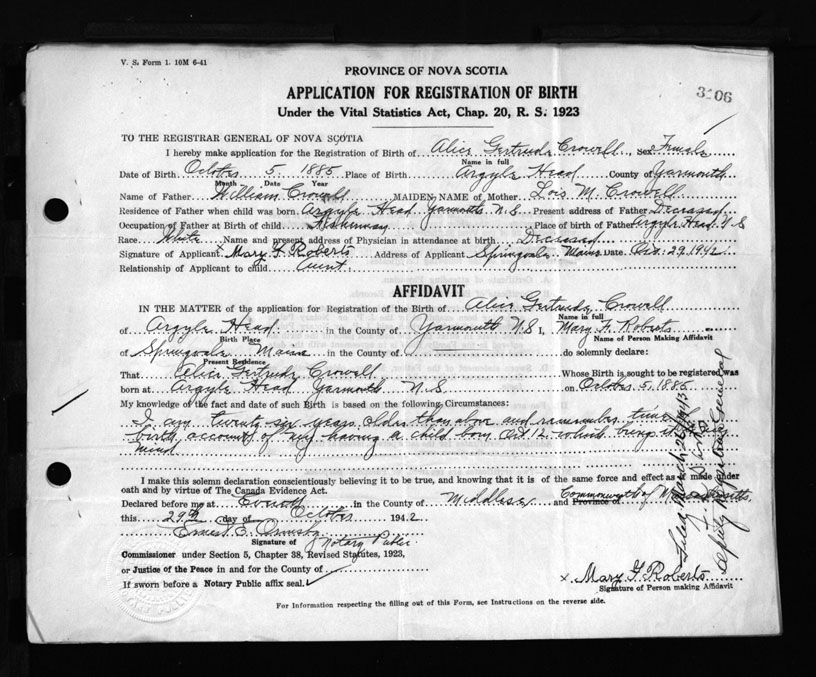 V. S. Form 1. 10M 6-41
PROVINCE OF NOVA SCOTIA
APPLICATION FOR REGISTRATION OF BIRTH
3106
Under the Vital Statistics Act, Chap. 20, R. S. 1923
TO THE REGISTRAR GENERAL OF NOVA SCOTIA
I hereby make application for the Registration of Birth of Alice Gertrude Crowell Sex Female
Name in full
Date of Birth October 5 1885 Place of Birth Argyle Head County of Yarmouth
Month Date Year
Name of Father William Crowell MAIDEN NAME of Mother Lois M. Crowell
Residence of Father when child was born Argyle Head Yarmouth N.S Present address of Father Deceased
Occupation of Father at Birth of child Place of Birth of Father Argyle Head N S
Race White Name and present address of Physician in attendance at birth Deceased
Signature of Applicant x Mary F. Roberts Address of Applicant Springvale Maine Date Oct. 29 1942
Relationship of Applicant to child Aunt
AFFIDAVIT
IN THE MATTER of the application for Registration of the Birth of Alice Gertrude Crowell
Name in full
of Argyle Head in the County of Yarmouth N.S I, Mary F. Roberts
Birth Place Name of Person Making Affidavit
of Springvale Maine in the County of do solemnly declare:
Present Residence
That Alice Gertrude Crowell Whose Birth is sought to be registered was
born at Argyle Head Yarmouth N.S on October 5, 1885
My knowledge of the fact and date of such Birth is based on the following Circumstances:
I am twenty six years older than above and remember time of
birth account of my having a child born Oct 12 which brings it to my
mind
I make this solemn declaration conscientiously believing it to be true, and knowing that it is of the same force and effect as if made under
oath and by virtue of The Canada Evidence Act.
Declared before me at Everett in the County of Middlesex and Province of Commonwealth of Massachusetts
this 29th day of October 1942
Ernest E.
Signature of Notary Public
Commissioner under Section 5, Chapter 38, Revised Statutes, 1923,
or Justice of the Peace in and for the County of
If sworn before a Notary Public affix seal.
x Mary F. Roberts
Signature of Person making Affidavit
For Information respecting the filling out of this Form, see Instructions on the reverse side.
Deputy Registrar General